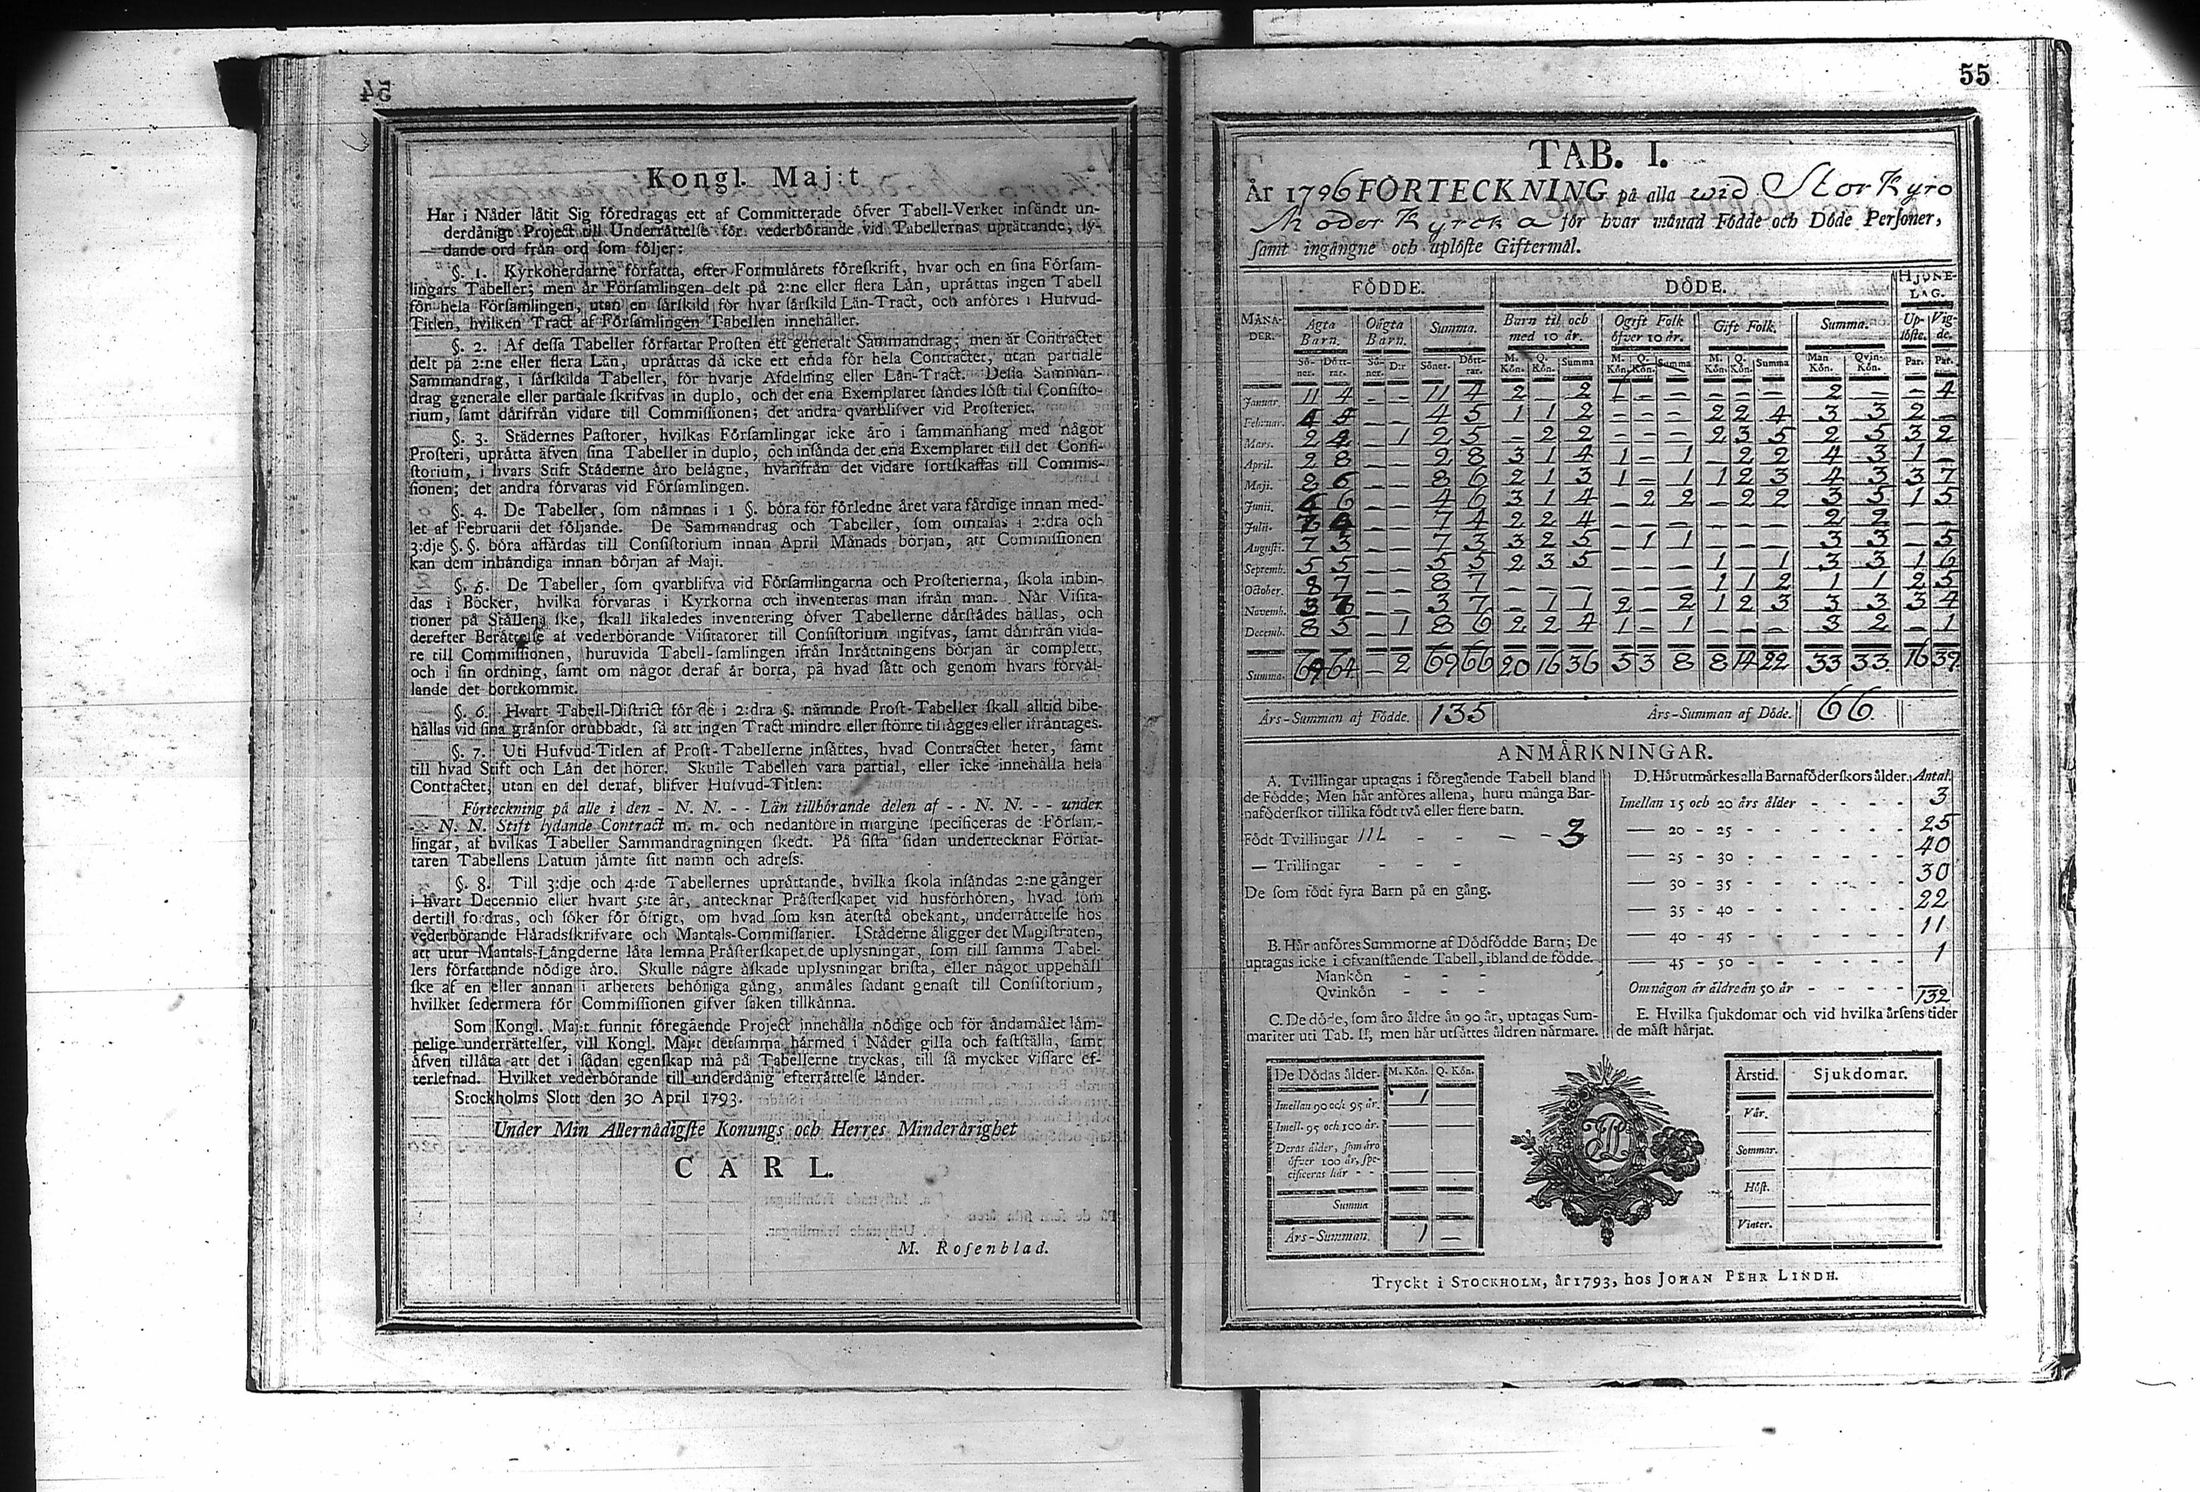 54
Kongl. Maj:t
Har i Nåder låtit Sig föredragas ett af Committerade öfver Tabell-Verket insändt un-
derdånigt Project till Underrättelse för vederbörande vid Tabellernas uprättande, ly-
dande ord från ord som följer:
§. 1. Kyrkoherdarne författa, efter Formulärets föreskrift, hvar och en sina Försam-
lingars Tabeller; men är Församlingen delt på 2:ne eller flera Län, uprättas ingen Tabell
för hela Församlingen, utan en särskild för hvar särskild Län-Tract, och anföres i Hufvud-
Titlen, hvilken Tract af Församlingen Tabellen innehåller.
§. 2. Af dessa Tabeller författar Prosten ett generalt Sammandrag; men är Contractet
delt på 2:ne eller flera Län, uprättas då icke ett enda för hela Contractet, utan partiale
Sammandrag, i särskilda Tabeller, för hvarje Afdelning eller Län-Tract. Dessa Samman-
drag generale eller partiale skrifvas in duplo, och det ena Exemplaret sändes löst til Consisto-
rium, samt därifrån vidare till Commissionen; det andra qvarblifver vid Prosteriet.
§. 3. Städernes Pastorer, hvilkas Församlingar icke äro i sammanhang med något
Prosteri, uprätta äfven sina Tabeller in duplo, och insända det ena Exemplaret till det Consi-
storium, i hvars Stift Städerne äro belägne, hvarifrån det vidare fortskaffas till Commis-
sionen; det andra förvaras vid Församlingen.
§. 4. De Tabeller, som nämnas i 1 §. böra för förledne året vara färdige innan med-
let af Februarii det följande. De Sammandrag och Tabeller, som omtalas i 2:dra och
3:dje §. §. böra affärdas till Consistorium innan April Månads början, att Commissionen
kan dem inhändiga innan början af Maji.
§. 5. De Tabeller, som qvarblifva vid Församlingarna och Prosterierna, skola inbin-
das i Böcker, hvilka förvaras i Kyrkorna och inventeras man ifrån man. När Visita-
tioner på Ställena ske, skall likaledes inventering öfver Tabellerne därstädes hållas, och
derefter Berättelse af vederbörande Visitatorer till Consistorium ingifvas, samt därifrån vida-
re till Commissionen, huruvida Tabell-samlingen ifrån Inrättningens början är complett,
och i sin ordning, samt om något deraf är borta, på hvad sätt och genom hvars förvål-
lande det bortkommit.
§. 6. Hvart Tabell-District för de i 2:dra §. nämnde Prost-Tabeller skall alltid bibe-
hållas vid sina gränsor orubbadt, så att ingen Tract mindre eller större tillägges eller ifråntages.
§. 7. Uti Hufvud-Titlen af Prost-Tabellerne insättes, hvad Contractet heter, samt
till hvad Stift och Län det hörer. Skulle Tabellen vara partial, eller icke innehålla hela
Contractet, utan en del deraf, blifver Hufvud-Titlen:
Förteckning på alle i den - N. N. - - Län tillhörande delen af - - N. N. - - under
- - N. N. Stift lydande Contract m. m. och nedanföre in margine specificeras de Försam-
lingar, af hvilkas Tabeller Sammandragningen skedt. På sista sidan undertecknar Förfat-
taren Tabellens Datum jämte sitt namn och adress.
§. 8. Till 3:dje och 4:de Tabellernes uprättande, hvilka skola insändas 2:ne gånger
i hvart Decennio eller hvart 5:te år, antecknar Prästerskapet vid husförhören, hvad som
dertill fordras, och söker för öfrigt, om hvad som kan återstå obekant, underrättelse hos
vederbörande Häradsskrifvare och Mantals-Commissarier. I Städerne åligger det Magistraten,
att utur Mantals-Längderne låta lemna Prästerskapet de uplysningar, som till samma Tabel-
lers författande nödige äro. Skulle några äskade uplysningar brista, eller något uppehåll
ske af en eller annan i arbetets behöriga gång, anmäles sådant genast till Consistorium,
hvilket sedermera för Commissionen gifver saken tillkänna.
Som Kongl. Maj:t funnit föregående Project innehålla nödige och för ändamålet läm-
pelige underrättelser, vill Kongl. Maj:t detsamma härmed i Nåder gilla och fastställa, samt
äfven tillåta att det i sådan egenskap må på Tabellerne tryckas, till så mycket vissare ef-
terlefnad. Hvilket vederbörande till underdånig efterrättelse länder.
Stockholms Slott den 30 April 1793.
Under Min Allernådigste Konungs och Herres Minderårighet
CARL.
M. Rosenblad.
55
TAB. I.
År 1796 FÖRTECKNING på alla wid Stor Kyro
Moder Kyrcka för hvar månad Födde och Döde Personer,
samt ingångne och uplöste Giftermål.
FÖDDE. DÖDE. HJONE-LAG.
MÅNA-DER. Ägta Barn. Oägta Barn. Summa. Barn til och med 10 år. Ogift Folk öfver 10 år. Gift Folk. Summa. Up-löste. Vig-de.
Sö-ner. Dött-rar. Sö-ner. D:r Söner. Dött-rar. M. Kön. Q. Kön. Summa M. Kön. Q. Kön. Summa M. Kön. Q. Kön. Summa Man Kön. Qvin-Kön. Par. Par.
Januar. 11 4 – – 11 4 2 – 2 1 – – – – – 2 – – 4
Februar. 4 5 – – 4 5 1 1 2 – – – 2 2 4 3 3 2 –
Mars. 2 4 – 1 2 5 – 2 2 – – – 2 3 5 2 5 3 2
April. 2 8 – – 2 8 3 1 4 1 – 1 – 2 2 4 3 1 –
Maji. 2 6 – – 8 6 2 1 3 1 – 1 1 2 3 4 3 3 7
Junii. 4 6 – – 4 6 3 1 4 – 2 2 – 2 2 3 5 1 5
Julii. 7 4 – – 7 4 2 2 4 – – – – – – 2 2 – –
Augusti. 7 3 – – 7 3 3 2 5 – 1 1 – – – 3 3 – 5
Septemb. 5 5 – – 5 5 2 3 5 – – – 1 – 1 3 3 1 6
October. 8 7 – – 8 7 – – – – – – 1 1 2 1 1 2 5
Novemb. 3 7 – – 3 7 – 1 1 2 – 2 1 2 3 3 3 3 4
Decemb. 8 5 – 1 8 6 2 2 4 1 – 1 – – – 3 2 – 1
Summa. 69 64 – 2 69 66 20 16 36 5 3 8 8 14 22 33 33 16 39
Års-Summan af Födde. 135 Års-Summan af Döde. 66
ANMÄRKNINGAR.
A. Tvillingar uptagas i föregående Tabell bland
de Födde; Men här anföres allena, huru många Bar-
naföderskor tillika födt två eller flere barn.
Födt Tvillingar - - – – 3
— Trillingar - - -
De som födt fyra Barn på en gång.
B. Här anföres Summorne af Dödfödde Barn; De
uptagas icke i ofvanstående Tabell, ibland de födde.
Mankön - - -
Qvinkön - - -
C. De döde, som äro äldre än 90 år, uptagas Sum-
mariter uti Tab. II, men här utsättes åldren närmare.
De Dödas ålder. M. Kön. Q. Kön.
Imellan 90 och 95 år. 1
Imell. 95 och 100 år.
Deras ålder, som äro
öfver 100 år, spe-
cificeras här - -
Summa
Års-Summan. 1 –
D. Här utmärkes alla Barnaföderskors ålder. Antal.
Imellan 15 och 20 års ålder - - - - 3
— 20 - 25 - - - - - - 25
— 25 - 30 - - - - - - 40
— 30 - 35 - - - - - - 30
— 35 - 40 - - - - - - 22
— 40 - 45 - - - - - - 11
— 45 - 50 - - - - - - 1
Om någon är äldre än 50 år - - - -
132
E. Hvilka sjukdomar och vid hvilka årsens tider
de mäst härjat.
Årstid. Sjukdomar.
Vår.
Sommar.
Höst.
Vinter.
Tryckt i STOCKHOLM, år 1793, hos JOHAN PEHR LINDH.